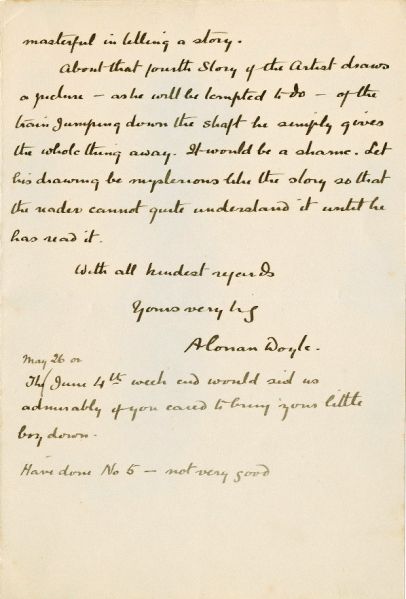 masterful in telling a story.
About that fourth Story if the Artist draws
a picture – as he will be tempted to do – of the
train jumping down the shaft he simply gives
the whole thing away. It would be a shame. Let
his drawing be mysterious like the story so that
the reader cannot quite understand it until he
has read it.
With all kindest regards
Yours very
A Conan Doyle.
May 26 or
June 4th week end would us
admirably if you cared to bring your little
boy down.
Have done No 5 – not very good